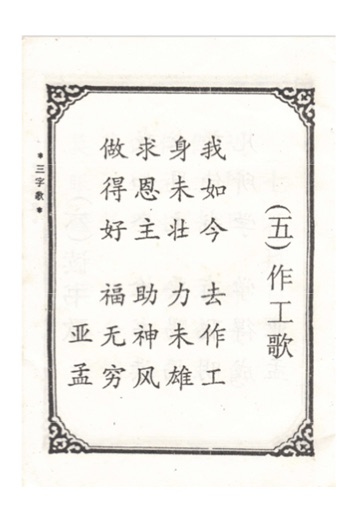 (五)作工歌
我如今 去作工
身未壮 力未雄
求恩主 助神风
做得好 福无穷
亚孟
*三字歌*